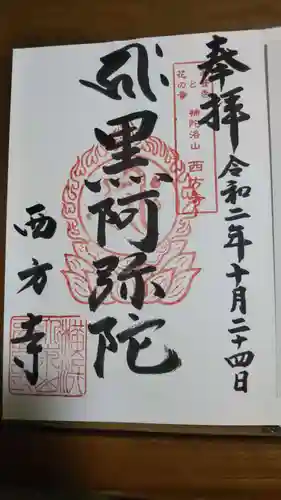 奉拝
令和二年十月二十四日
補陀洛山 西方寺
花の寺
黒阿弥陀
西方寺